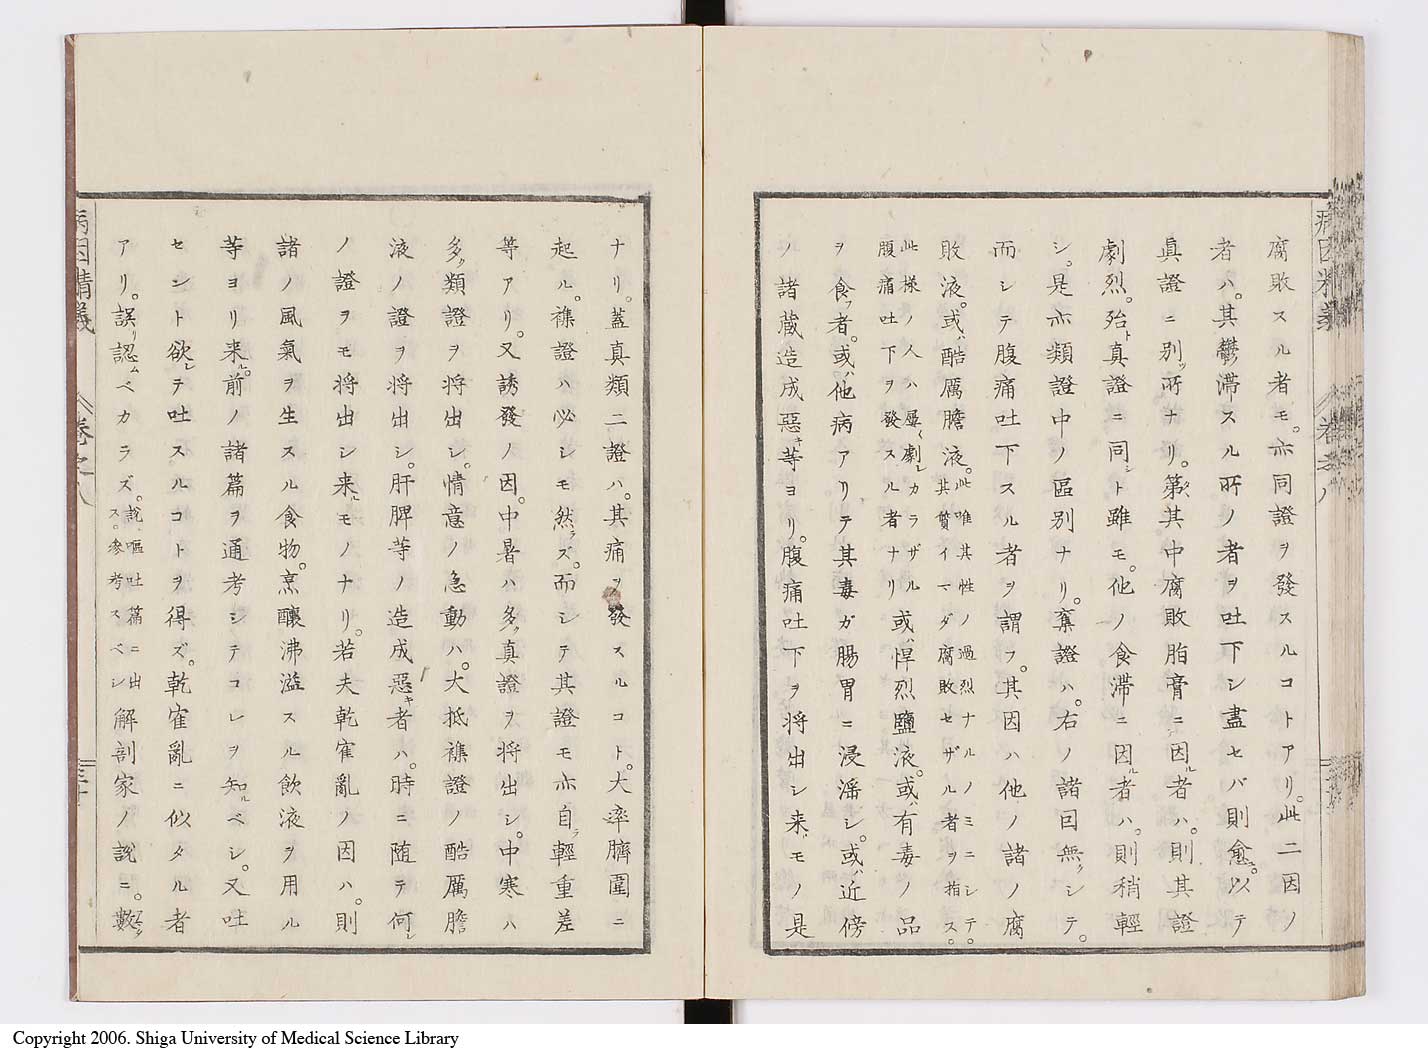 腐敗スル者モ。亦同證ヲ發スルコトアリ。此二因ノ
者ハ。其鬱滯スル所ノ者ヲ吐下シ盡セバ則愈。以テ
真證ニ別ツ所ナリ。第其中腐敗脂膏ニ因ル者ハ。則其證
劇烈。殆ト真證ニ同シト雖モ。他ノ食滯ニ因ル者ハ。則稍輕
シ。是亦類證中ノ區別ナリ。奪證ハ。右ノ諸因無クシテ。
而シテ腹痛吐下スル者ヲ謂フ。其因ハ他ノ諸ノ腐
敗液。或ハ酷厲膽液。此唯其性ノ過烈ナルノミニシテ。
其質イマダ腐敗セザル者ヲ指ス。
此樣ノ人ハ屢劇シカラザル
腹痛吐下ヲ發スル者ナリ
或ハ悍烈鹽液。或ハ有毒ノ品
ヲ食フ者。或ハ他病アリテ其毒ガ腸胃ニ浸滛シ。或ハ近傍
ノ諸藏造成惡キ等ヨリ。腹痛吐下ヲ將出シ來ルモノ是
病因精義 卷之八
ナリ。蓋真類二證ハ。其痛ヲ發スルコト。大率臍圍ニ
起ル。襍證ハ必シモ然ラズ。而シテ其證モ亦自ラ輕重差
等アリ。又誘發ノ因。中暑ハ多ク真證ヲ將出シ。中寒ハ
多ク類證ヲ將出シ。情意ノ急動ハ。大抵襍證ノ酷厲膽
液ノ證ヲ將出シ。肝脾等ノ造成惡キ者ハ。時ニ随テ何レ
ノ證ヲモ將出シ来ルモノナリ。若夫乾霍亂ノ因ハ。則
諸ノ風氣ヲ生スル食物。烹釀沸溢スル飲液ヲ用ル
等ヨリ来ル。前ノ諸篇ヲ通考シテコレヲ知ルベシ。又吐
セント欲シテ吐スルコトヲ得ズ。乾霍亂ニ似タル者
アリ。誤リ認ムベカラズ。說嘔吐篇ニ出
ス。參考スベシ
解剖家ノ說ニ。數
病因精義 卷之八 三十